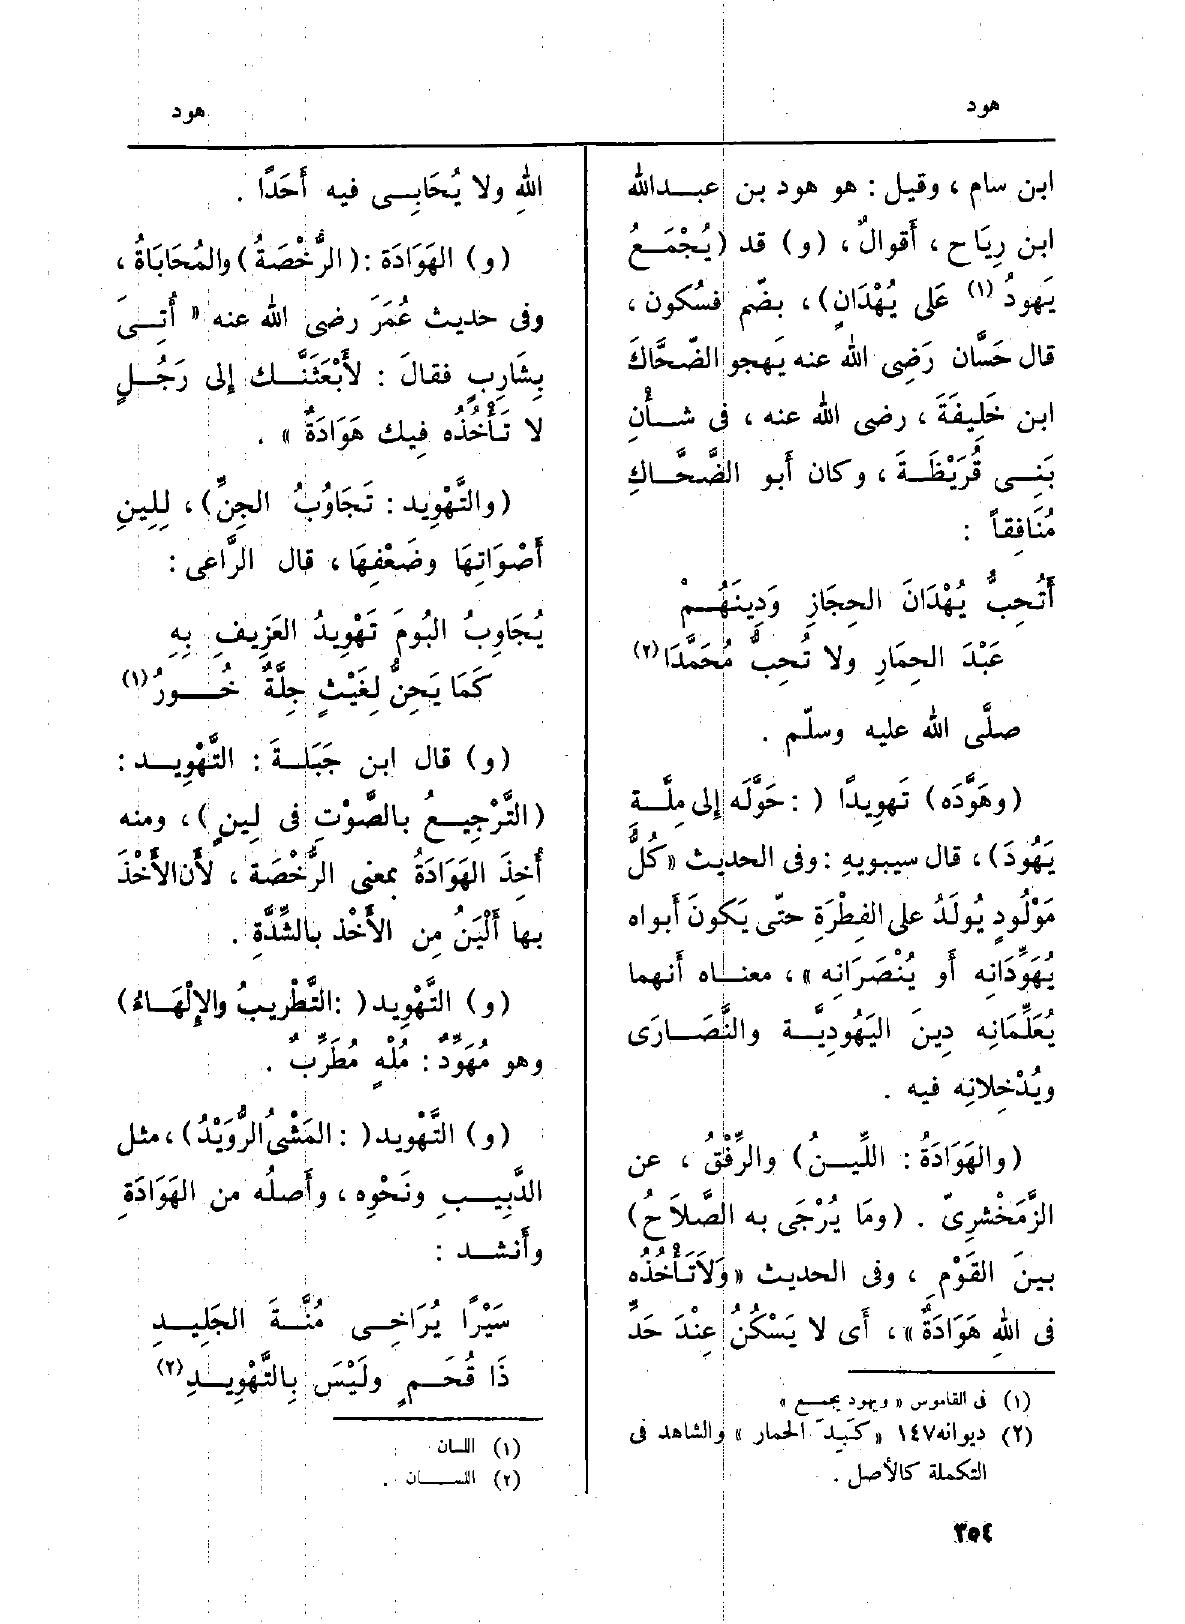 هود
هود
ابن سام ، وقيل : هو هود بن عبدالله
ابن رِيَاح ، أَقوالٌ ، (و) قد (يُجْمَعُ
يَهودُ (١) عَلى يُهْدَانٍ) ، بضّم فسُكون ،
قال حَسَّان رَضِى الله عنه يَهجو الضّحَّاكَ
ابن خَلِيفَةَ ، رضى الله عنه ، فى شأْنِ
بَنِى قُرَيْظَةَ ، وكان أَبو الضَّحَّاكِ
مُنَافِقاً :
أَتُحِبُّ يُهْدَانَ الحِجَازِ وَدِينَهُمْ
عَبْدَ الحِمَارِ ولا تُحِبُّ مُحَمَّدَا (٢)
صلَّى الله عليه وسلّم .
(وهَوَّدَه) تَهوِيدًا ( : حَوَّلَه إِلى مِلَّةِ
يَهُودَ) ، قال سيبويهِ : وفى الحديث «كُلُّ
مَوْلُودٍ يُولَدُ على الفِطْرَةِ حتّى يَكونَ أَبواه
يُهَوِّدَانِه أَو يُنْصَرَانِه» ، معناه أَنهما
يُعَلِّمَانِه دِينَ اليَهُودِيَّة والنَّصَارَى
ويُدْخِلانِه فيه .
(والهَوَادَةُ : اللِّينُ) والرِّفْقُ ، عن
الزَّمَخْشرِىّ . (ومَا يُرْجَى به الصَّلاَحُ)
بينَ القَوْمِ ، وفى الحديث «وَلاَتَأْخُذُه
فى اللهِ هَوَادَةٌ» ، أَى لا يَسْكُنُ عِنْدَ حَدِّ
(١) فى القاموس «ويهود يجمع»
(٢) ديوانه ١٤٧ «كَبِدَ الحمار» والشاهد فى
التكملة كالأصل .
اللهِ ولا يُحَابِى فيه أَحَدًا .
(و) الهَوَادَة :(الرُّخْصَةُ) والمُحَابَاةُ ،
وفى حديث عُمَرَ رضى الله عنه « أُتِىَ
بِشَارِبٍ فقالَ : لأَبْعَثَنَّك إِلى رَجُلٍ
لا تَأْخُذُه فِيك هَوَادَةٌ » .
(والتَّهْوِيد : تَجَاوُبُ الجِنِّ) ، لِلِينِ
أَصْوَاتِهَا وضَعْفِهَا ، قال الرَّاعى :
يُجَاوِبُ البُومَ تَهْوِيدُ العَزِيفِ بِهِ
كَمَا يَحِنُّ لِغَيْثٍ جِلَّةٌ خُورُ (١)
(و) قال ابن جَبَلَةَ : التَّهْوِيد :
(التَّرْجِيعُ بالصَّوْتِ فى لِينٍ) ، ومنه
أُخِذَ الهَوَادَةُ بمعنى الرُّخْصَة ، لأَن الأَخْذَ
بها أَلْيَنُ مِن الأَخْذ بالشِّدَّةِ .
(و) التَّهْوِيد( : التَّطْرِيبُ والإِلْهَاءُ)
وهو مُهَوِّدٌ : مُلْهٍ مُطَرِّبٌ .
(و) التَّهْوِيد( : المَشْىُ الرُّوَيْدُ) ، مثل
الدَّبِيبِ ونَحْوِه ، وأَصلُه من الهَوَادَةِ
وأَنشد :
سَيْرًا يُرَاخِى مُنَّةَ الجَلِيدِ
ذَا قُحَمٍ ولَيْسَ بِالتَّهْوِيدِ (٢)
(١) اللسان
(٢) اللسان .
٣٥٤